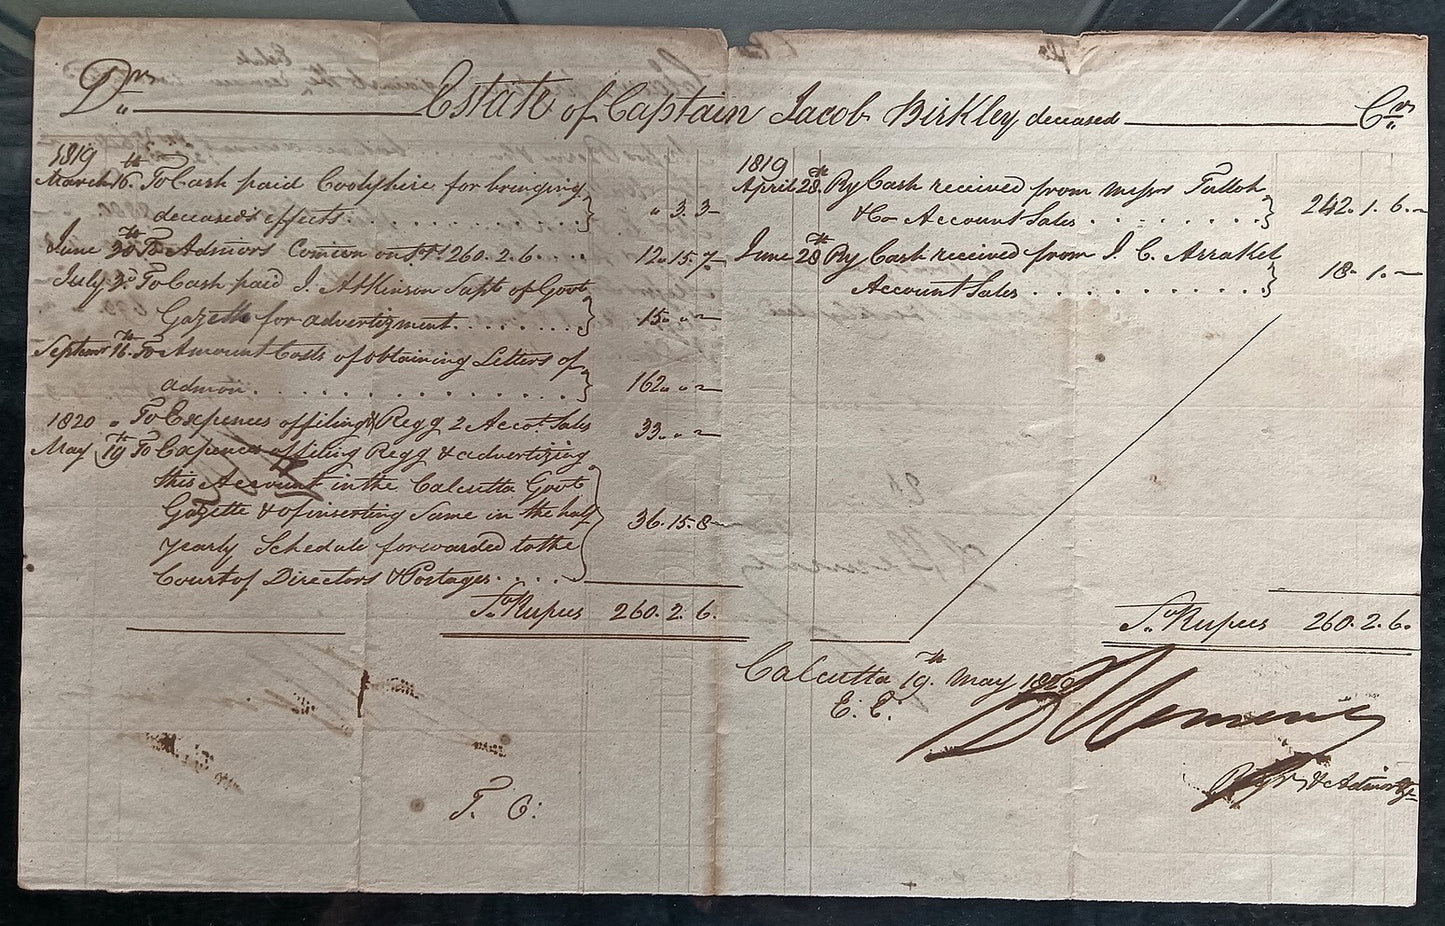 Dr Estate of Captain Jacob Birkley deceased Cr
1819
March 16.th To Cash paid Cooly hire for bringing
deceased's effects . . . . . . . " 3. 3 –
June 28th To Admors Comion on S.rs 260. 2. 6. . . . . 12. 15. 7 –
July 3d To Cash paid J. Atkinson Supt of Govt
Gazette for advertizment . . . . . . . . 15. " " –
Septemr 16.th To Amount Costs of obtaining Letters of
admon . . . . . . . . . . . . . . 162. " " –
1820 " To Expences of filing & Regg 2 Accot Sales 33. " " –
May 19th To Expences of filing Regg & advertizing
this Account in the Calcutta Govt
Gazette & of inserting Same in the half
yearly Schedule forwarded to the
Court of Directors & Postages . . . . 36. 15. 8 –
Sa Rupees 260. 2. 6.
T. C:
1819
April 28.th By Cash received from Messrs Tulloh
& Co Account Sales . . . . . . . . 242. 1. 6. –
June 28th By Cash received from J. C. Arraket
Account Sales . . . . . . . . . . . . 18. 1. –
Sa Rupees 260. 2. 6.
Calcutta 19.th May 1820
E. E.
Regr & Admor